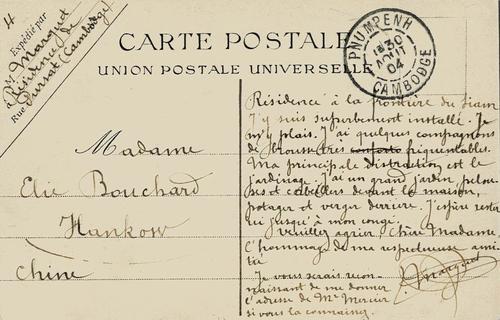 4
Expédié par
M Marquet
à Résidence de
Rue Pursat (Cambodge)
CARTE POSTALE
UNION POSTALE UNIVERSELLE
PNUMPENH
30
AOUT
04
CAMBODGE
Madame
Elie Bouchard
Hankow
Chine
Résidence à la frontière du Siam
J'y suis superbement installé. Je
m'y plais. J'ai quelques compagnons
de brousse très fréquentables.
Ma principale distraction est le
jardinage. J'ai un grand jardin, pelou-
ses et corbeilles devant la maison,
potager et verger derrière. J'espère rester
ici jusqu'à mon congé.
Veuillez agréer, Chère Madame,
l'hommage de ma respectueuse ami-
tié
Marquet
Je vous serais recon-
naissant de me donner
l'adresse de Mr Mercier
si vous la connaissez.